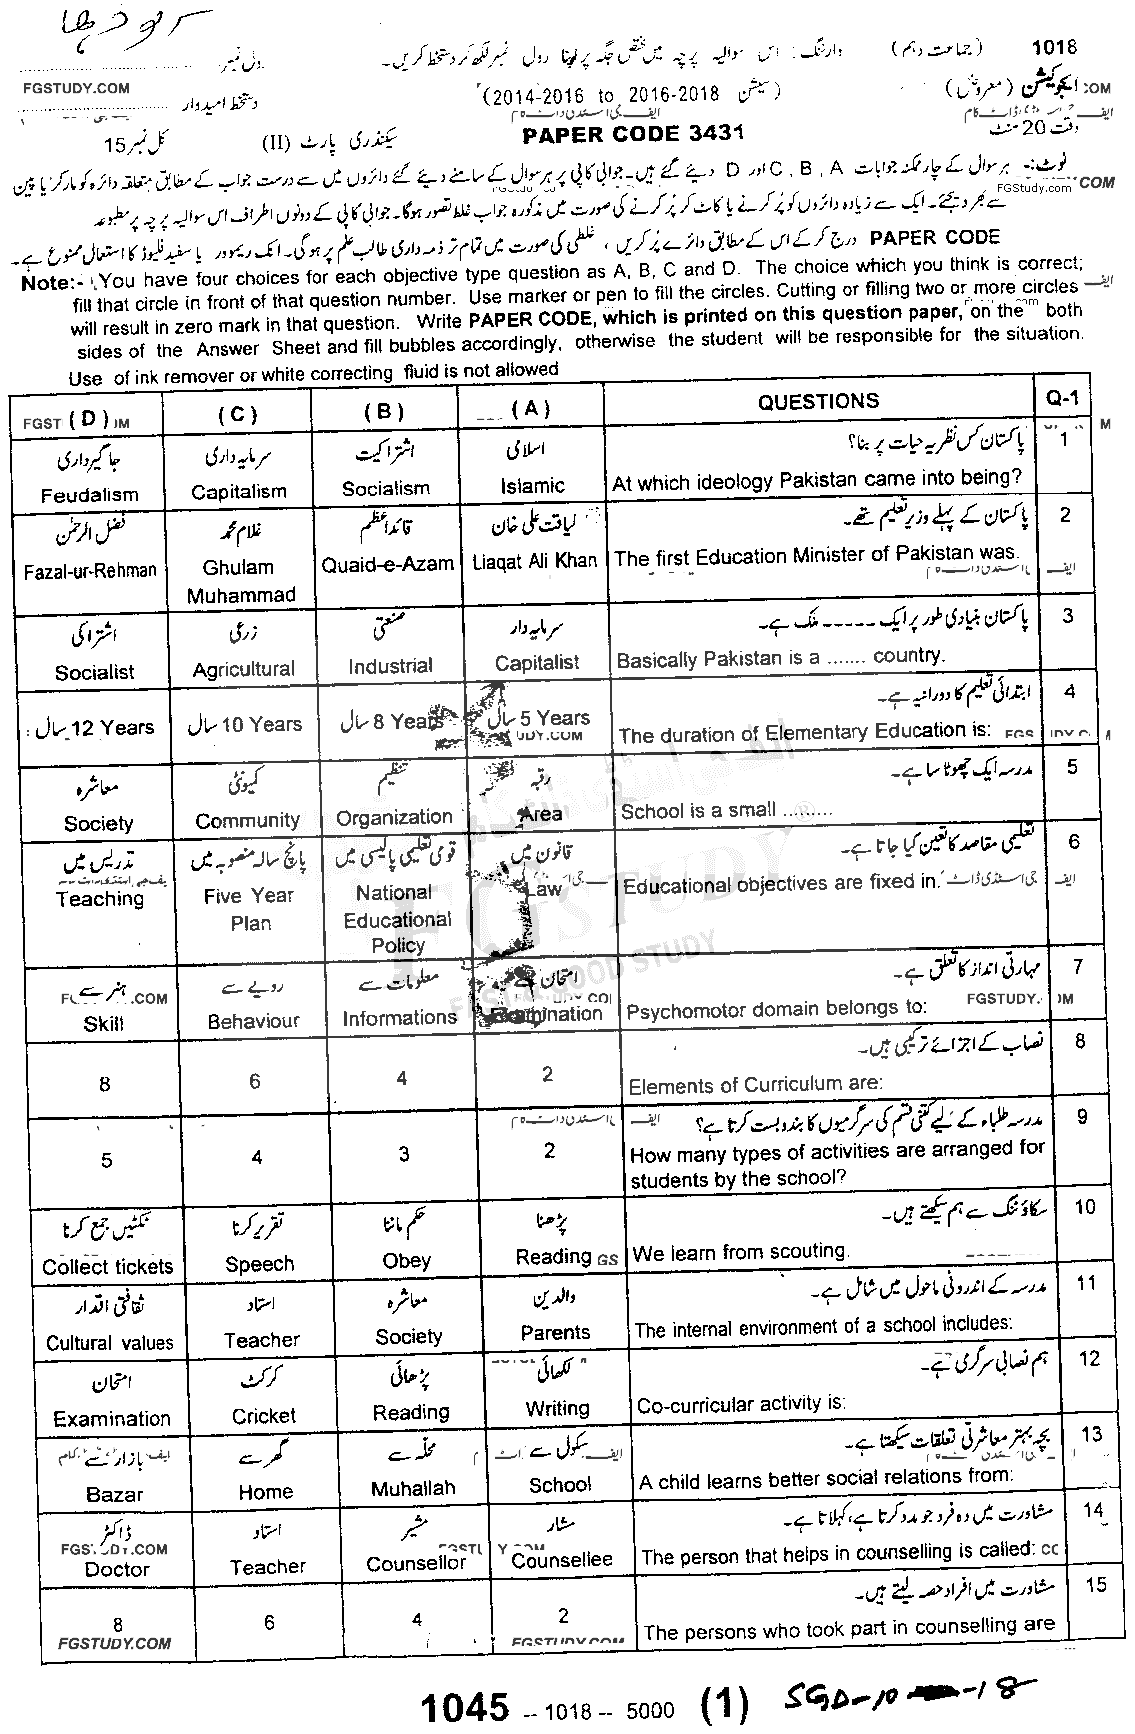 سرگودھا
1018 (جماعت دہم) وارننگ: اس سوالیہ پرچہ میں مختص جگہ پر اپنا رول نمبر لکھ کر دستخط کریں۔ رول نمبر
FGSTUDY.COM
ایجوکیشن (معروضی) COM
(سیشن 2014-2016 to 2016-2018) دستخط امیدوار
وقت 20 منٹ PAPER CODE 3431 سیکنڈری پارٹ (II) کل نمبر 15
نوٹ:- ہر سوال کے چار ممکنہ جوابات A , B , C اور D دیئے گئے ہیں۔ جوابی کاپی پر ہر سوال کے سامنے دیئے گئے دائروں میں سے درست جواب کے مطابق متعلقہ دائرہ کو مارکر یا پین
FGStudy.com COM
سے بھر دیجئے۔ ایک سے زیادہ دائروں کو پُر کرنے یا کاٹ کر پُر کرنے کی صورت میں مذکورہ جواب غلط تصور ہوگا۔ جوابی کاپی کے دونوں اطراف اس سوالیہ پرچہ پر مطبوعہ
PAPER CODE درج کر کے اس کے مطابق دائرے پُر کریں، غلطی کی صورت میں تمام تر ذمہ داری طالب علم پر ہوگی۔ انک ریموور یا سفید فلیوڈ کا استعمال ممنوع ہے۔
Note:- You have four choices for each objective type question as A, B, C and D. The choice which you think is correct;
fill that circle in front of that question number. Use marker or pen to fill the circles. Cutting or filling two or more circles
will result in zero mark in that question. Write PAPER CODE, which is printed on this question paper, on the both
sides of the Answer Sheet and fill bubbles accordingly, otherwise the student will be responsible for the situation.
Use of ink remover or white correcting fluid is not allowed
FGST (D) OM (C) (B) (A) QUESTIONS Q-1
جاگیرداری سرمایہ داری اشتراکیت اسلامی پاکستان کس نظریہ حیات پر بنا؟ 1
Feudalism Capitalism Socialism Islamic At which ideology Pakistan came into being?
فضل الرحمٰن غلام محمد قائداعظم لیاقت علی خان پاکستان کے پہلے وزیر تعلیم تھے۔ 2
Fazal-ur-Rehman Ghulam Quaid-e-Azam Liaqat Ali Khan The first Education Minister of Pakistan was.
Muhammad
اشتراکی زرعی صنعتی سرمایہ دار پاکستان بنیادی طور پر ایک ----- ملک ہے۔ 3
Socialist Agricultural Industrial Capitalist Basically Pakistan is a ....... country.
ابتدائی تعلیم کا دورانیہ ہے۔ 4
12 Years سال 10 Years سال 8 Years سال 5 Years سال The duration of Elementary Education is:
معاشرہ کمیونٹی تنظیم رقبہ مدرسہ ایک چھوٹا سا ہے۔ 5
Society Community Organization Area School is a small .........
تدریس میں پانچ سالہ منصوبہ میں قومی تعلیمی پالیسی میں قانون میں تعلیمی مقاصد کا تعین کیا جاتا ہے۔ 6
Teaching Five Year National Law Educational objectives are fixed in.
Plan Educational
Policy
ہنر سے رویے سے معلومات سے امتحان سے مہارتی انداز کا تعلق ہے۔ 7
Skill Behaviour Informations Examination Psychomotor domain belongs to: FGSTUDY. OM
نصاب کے اجزائے ترکیبی ہیں۔ 8
8 6 4 2 Elements of Curriculum are:
مدرسہ طلباء کے لیے کتنی قسم کی سرگرمیوں کا بندوبست کرتا ہے؟ 9
5 4 3 2 How many types of activities are arranged for
students by the school?
ٹکٹیں جمع کرنا تقریر کرنا حکم ماننا پڑھنا سکاؤٹنگ سے ہم سیکھتے ہیں۔ 10
Collect tickets Speech Obey Reading We learn from scouting.
ثقافتی اقدار استاد معاشرہ والدین مدرسہ کے اندرونی ماحول میں شامل ہے۔ 11
Cultural values Teacher Society Parents The internal environment of a school includes:
امتحان کرکٹ پڑھائی لکھائی ہم نصابی سرگرمی ہے۔ 12
Examination Cricket Reading Writing Co-curricular activity is:
بازار سے گھر سے محلہ سے سکول سے بچہ بہتر معاشرتی تعلقات سیکھتا ہے۔ 13
Bazar Home Muhallah School A child learns better social relations from:
ڈاکٹر استاد مشیر مشار مشاورت میں وہ فرد جو مدد کرتا ہے، کہلاتا ہے۔ 14
Doctor Teacher Counsellor Counsellee The person that helps in counselling is called:
مشاورت میں افراد حصہ لیتے ہیں۔ 15
8 6 4 2 The persons who took part in counselling are
FGSTUDY.COM FGSTUDY.COM
1045 -- 1018 -- 5000 (1) SGD-10-18